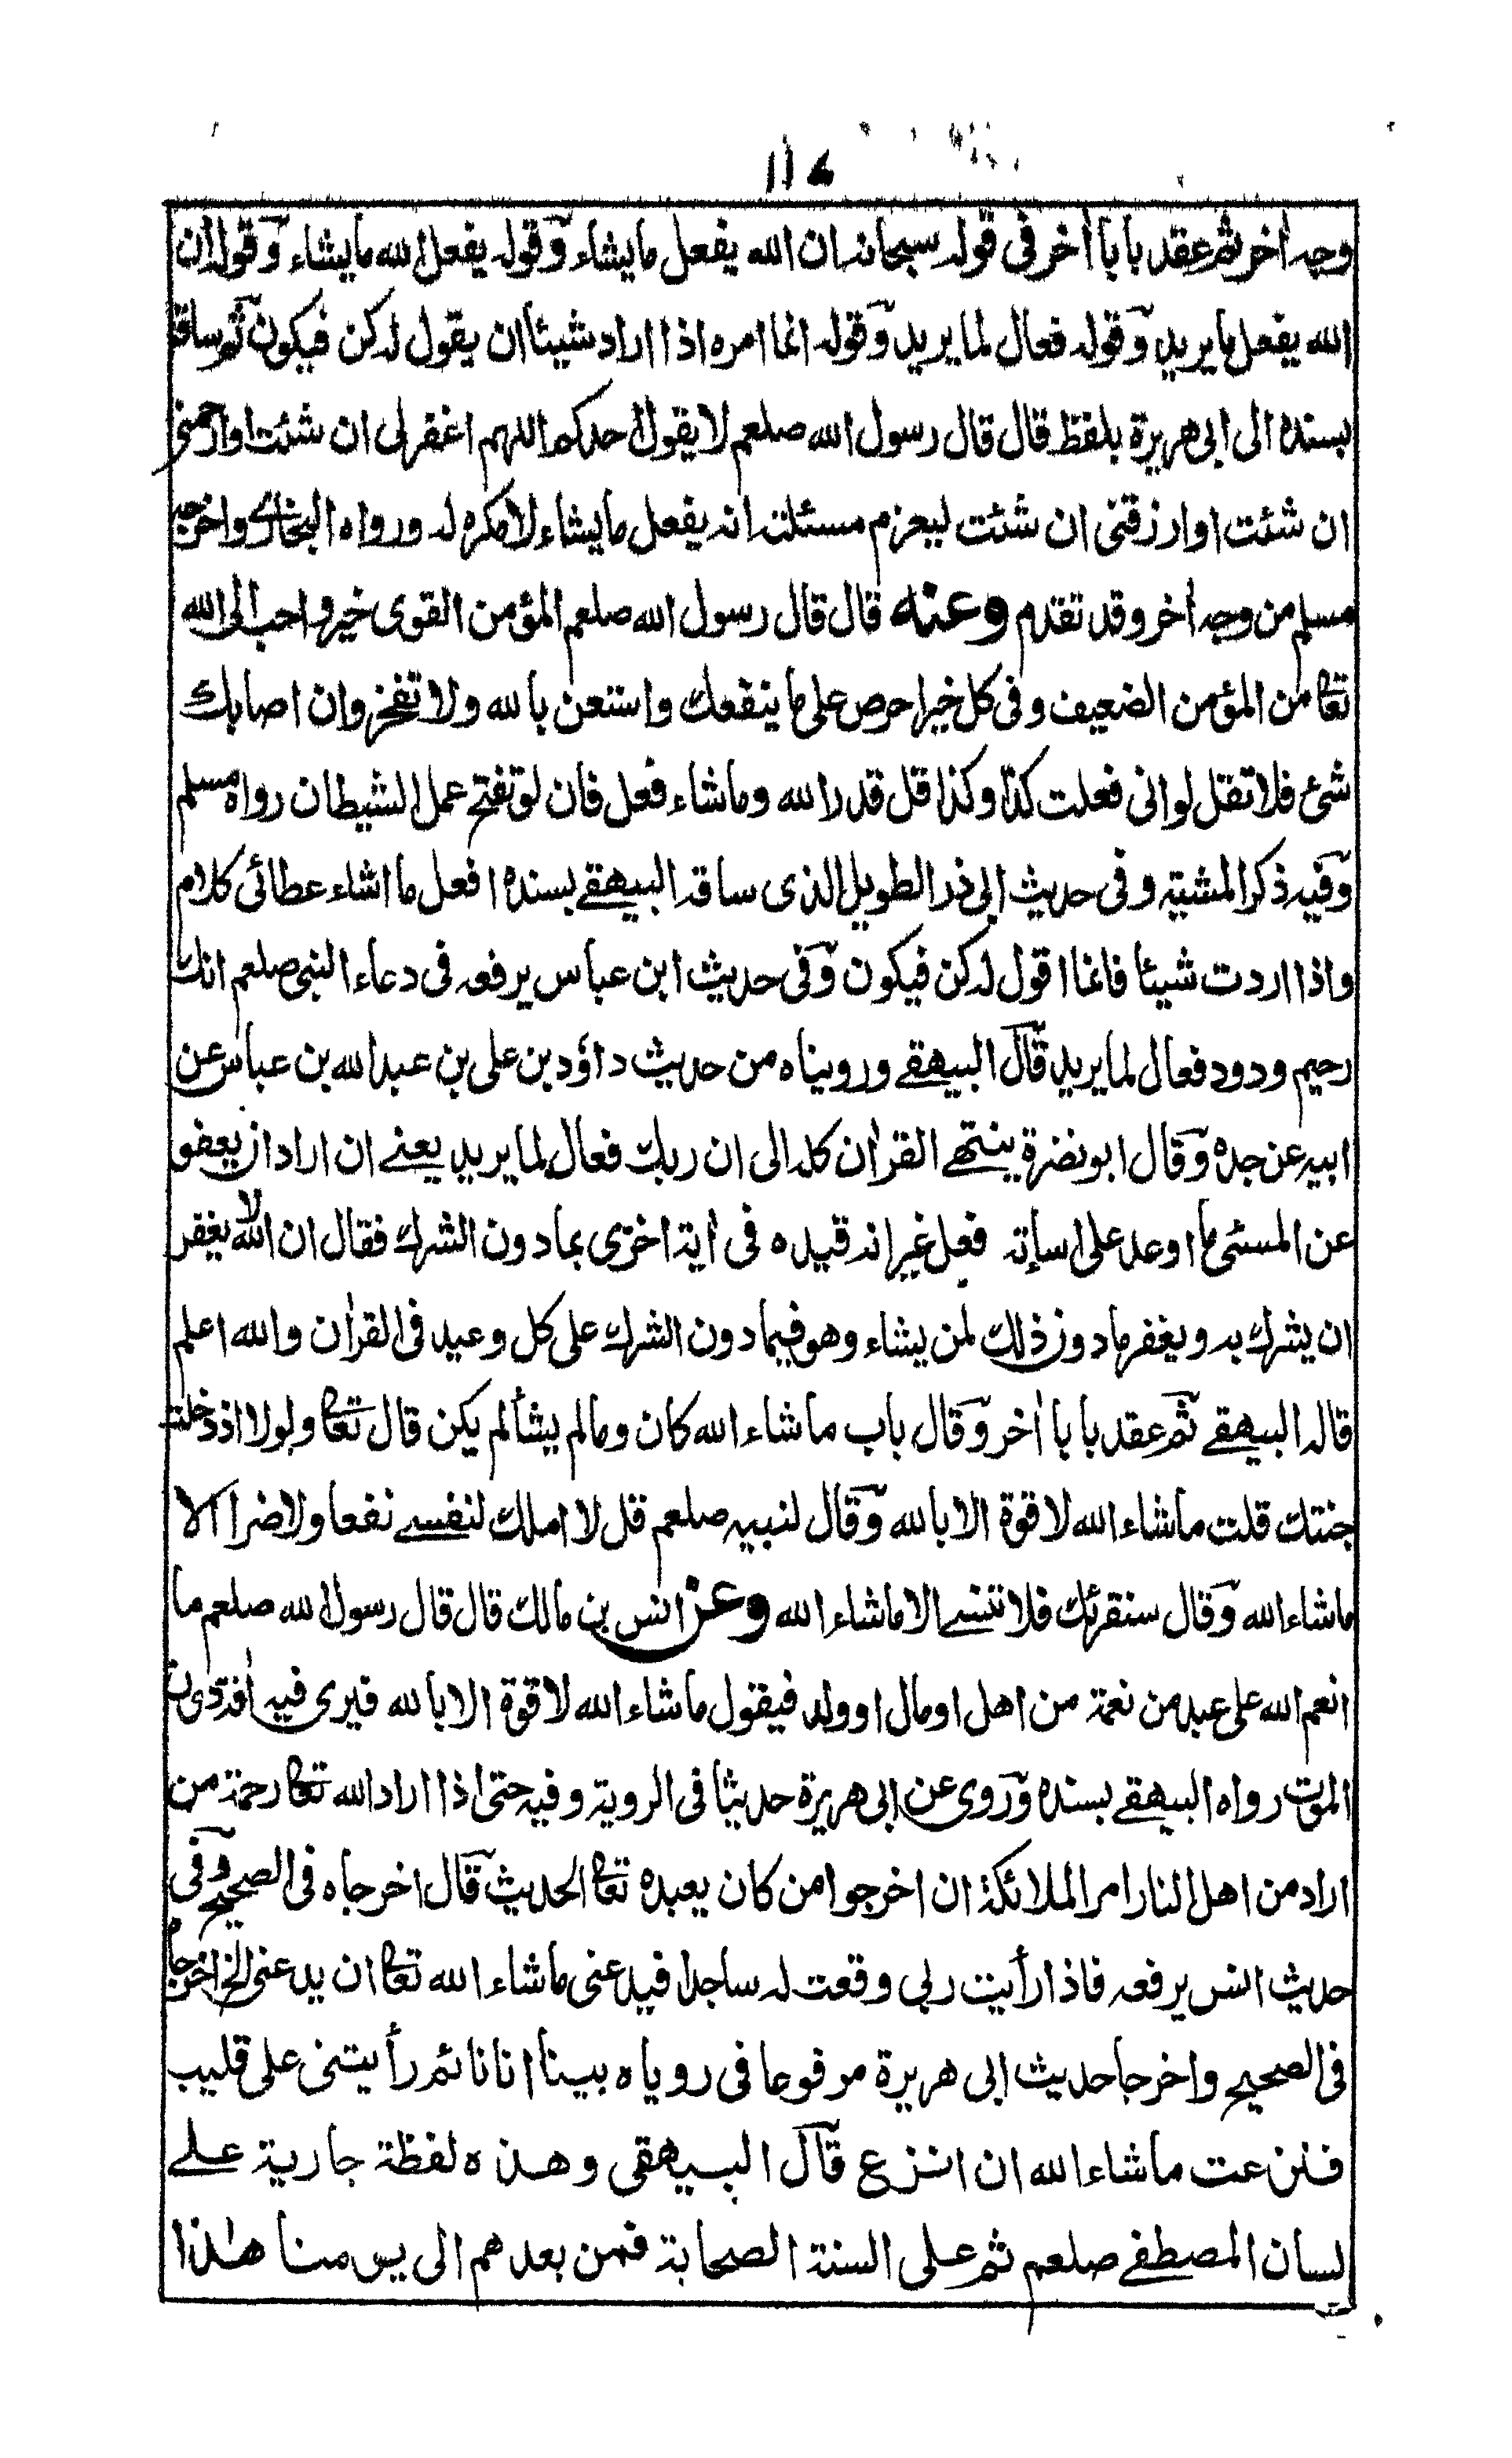 ١١٤
وجه اٰخر ثم عقد بابا اٰخر فى قوله سبحانه ان الله يفعل ما يشاء وقوله يفعل الله ما يشاء وقوله ان
الله يفعل ما يريد وقوله فعال لما يريد وقوله انما امره اذا اراد شيئا ان يقول له كن فيكون ثم ساقه
بسنده الى ابى هريرة بلفظ قال قال رسول الله صلعم لا يقول احدكم اللهم اغفر لى ان شئت او ارحمنى
ان شئت او ارزقنى ان شئت ليعزم مسئلته انه يفعل ما يشاء لا مكره له ورواه البخارى واخرجه
مسلم من وجه اٰخر وقد تقدم وعنه قال قال رسول الله صلعم المؤمن القوى خير و احب الى الله
تعا من المؤمن الضعيف وفى كل خير احرص على ما ينفعك واستعن بالله ولا تفجز وان اصابك
شئ فلا تقل لو انى فعلت كذا وكذا قل قدر الله وما شاء فعل فان لو تفتح عمل الشيطان رواه مسلم
وفيه ذكر المشية وفى حديث ابى ذر الطويل الذى ساقه البيهقے بسنده افعل ما اشاء عطائى كلام
واذا اردت شيئا فانما اقول له كن فيكون وفى حديث ابن عباس يرفعه فى دعاء النبى صلعم انك
رحيم ودود فعال لما يريد قال البيهقے وروينا ه من حديث داؤد بن على بن عبد الله بن عباس عن
ابيه عن جده وقال ابو نضرة ينتهے القراٰن كله الى ان ربك فعال لما يريد يعنے ان اراد ان يعفو
عن المسئى ما اوعد على اسأته فعل غير انه قيده فى اٰية اخرى بما دون الشرك فقال ان الله لا يغفر
ان يشرك به ويغفر ما دون ذلك لمن يشاء وهو فيما دون الشرك على كل وعيد فى القراٰن والله اعلم
قاله البيهقے ثم عقد بابا اٰخر وقال باب ما شاء الله كان وما لم يشأ لم يكن قال تعا ولولا اذ دخلت
جنتك قلت ما شاء الله لا قوة الا بالله وقال لنبيه صلعم قل لا املك لنفسے نفعا ولا ضرا الا
ما شاء الله وقال سنقرئك فلا تنسے الا ما شاء الله وعن انس بن مالك قال قال رسول الله صلعم ما
انعم الله على عبد من نعمة من اهل او مال او ولد فيقول ما شاء الله لا قوة الا بالله فيرى فيه اٰفة دون
الموت رواه البيهقے بسنده وروى عن ابى هريرة حديثا فى الروية وفيه حتى اذا اراد الله تعا رحمة من
اراد من اهل النار امر الملائكة ان اخرجوا من كان يعبده تعا الحديث قال اخرجاه فى الصحيح وفى
حديث انس يرفعه فاذا رأيت ربى وقعت له ساجدا فيدعنى ما شاء الله تعا ان يدعنى الخ اخرجاه
فى الصحيح واخرجا حديث ابى هريرة مرفوعا فى روياه بينا انا نائم رأيتنى على قليب
فنزعت ما شاء الله ان انزع قال البيهقى وهذه لفظة جارية علے
لسان المصطفے صلعم ثم على السنة الصحابة فمن بعدهم الى يومنا هٰذا